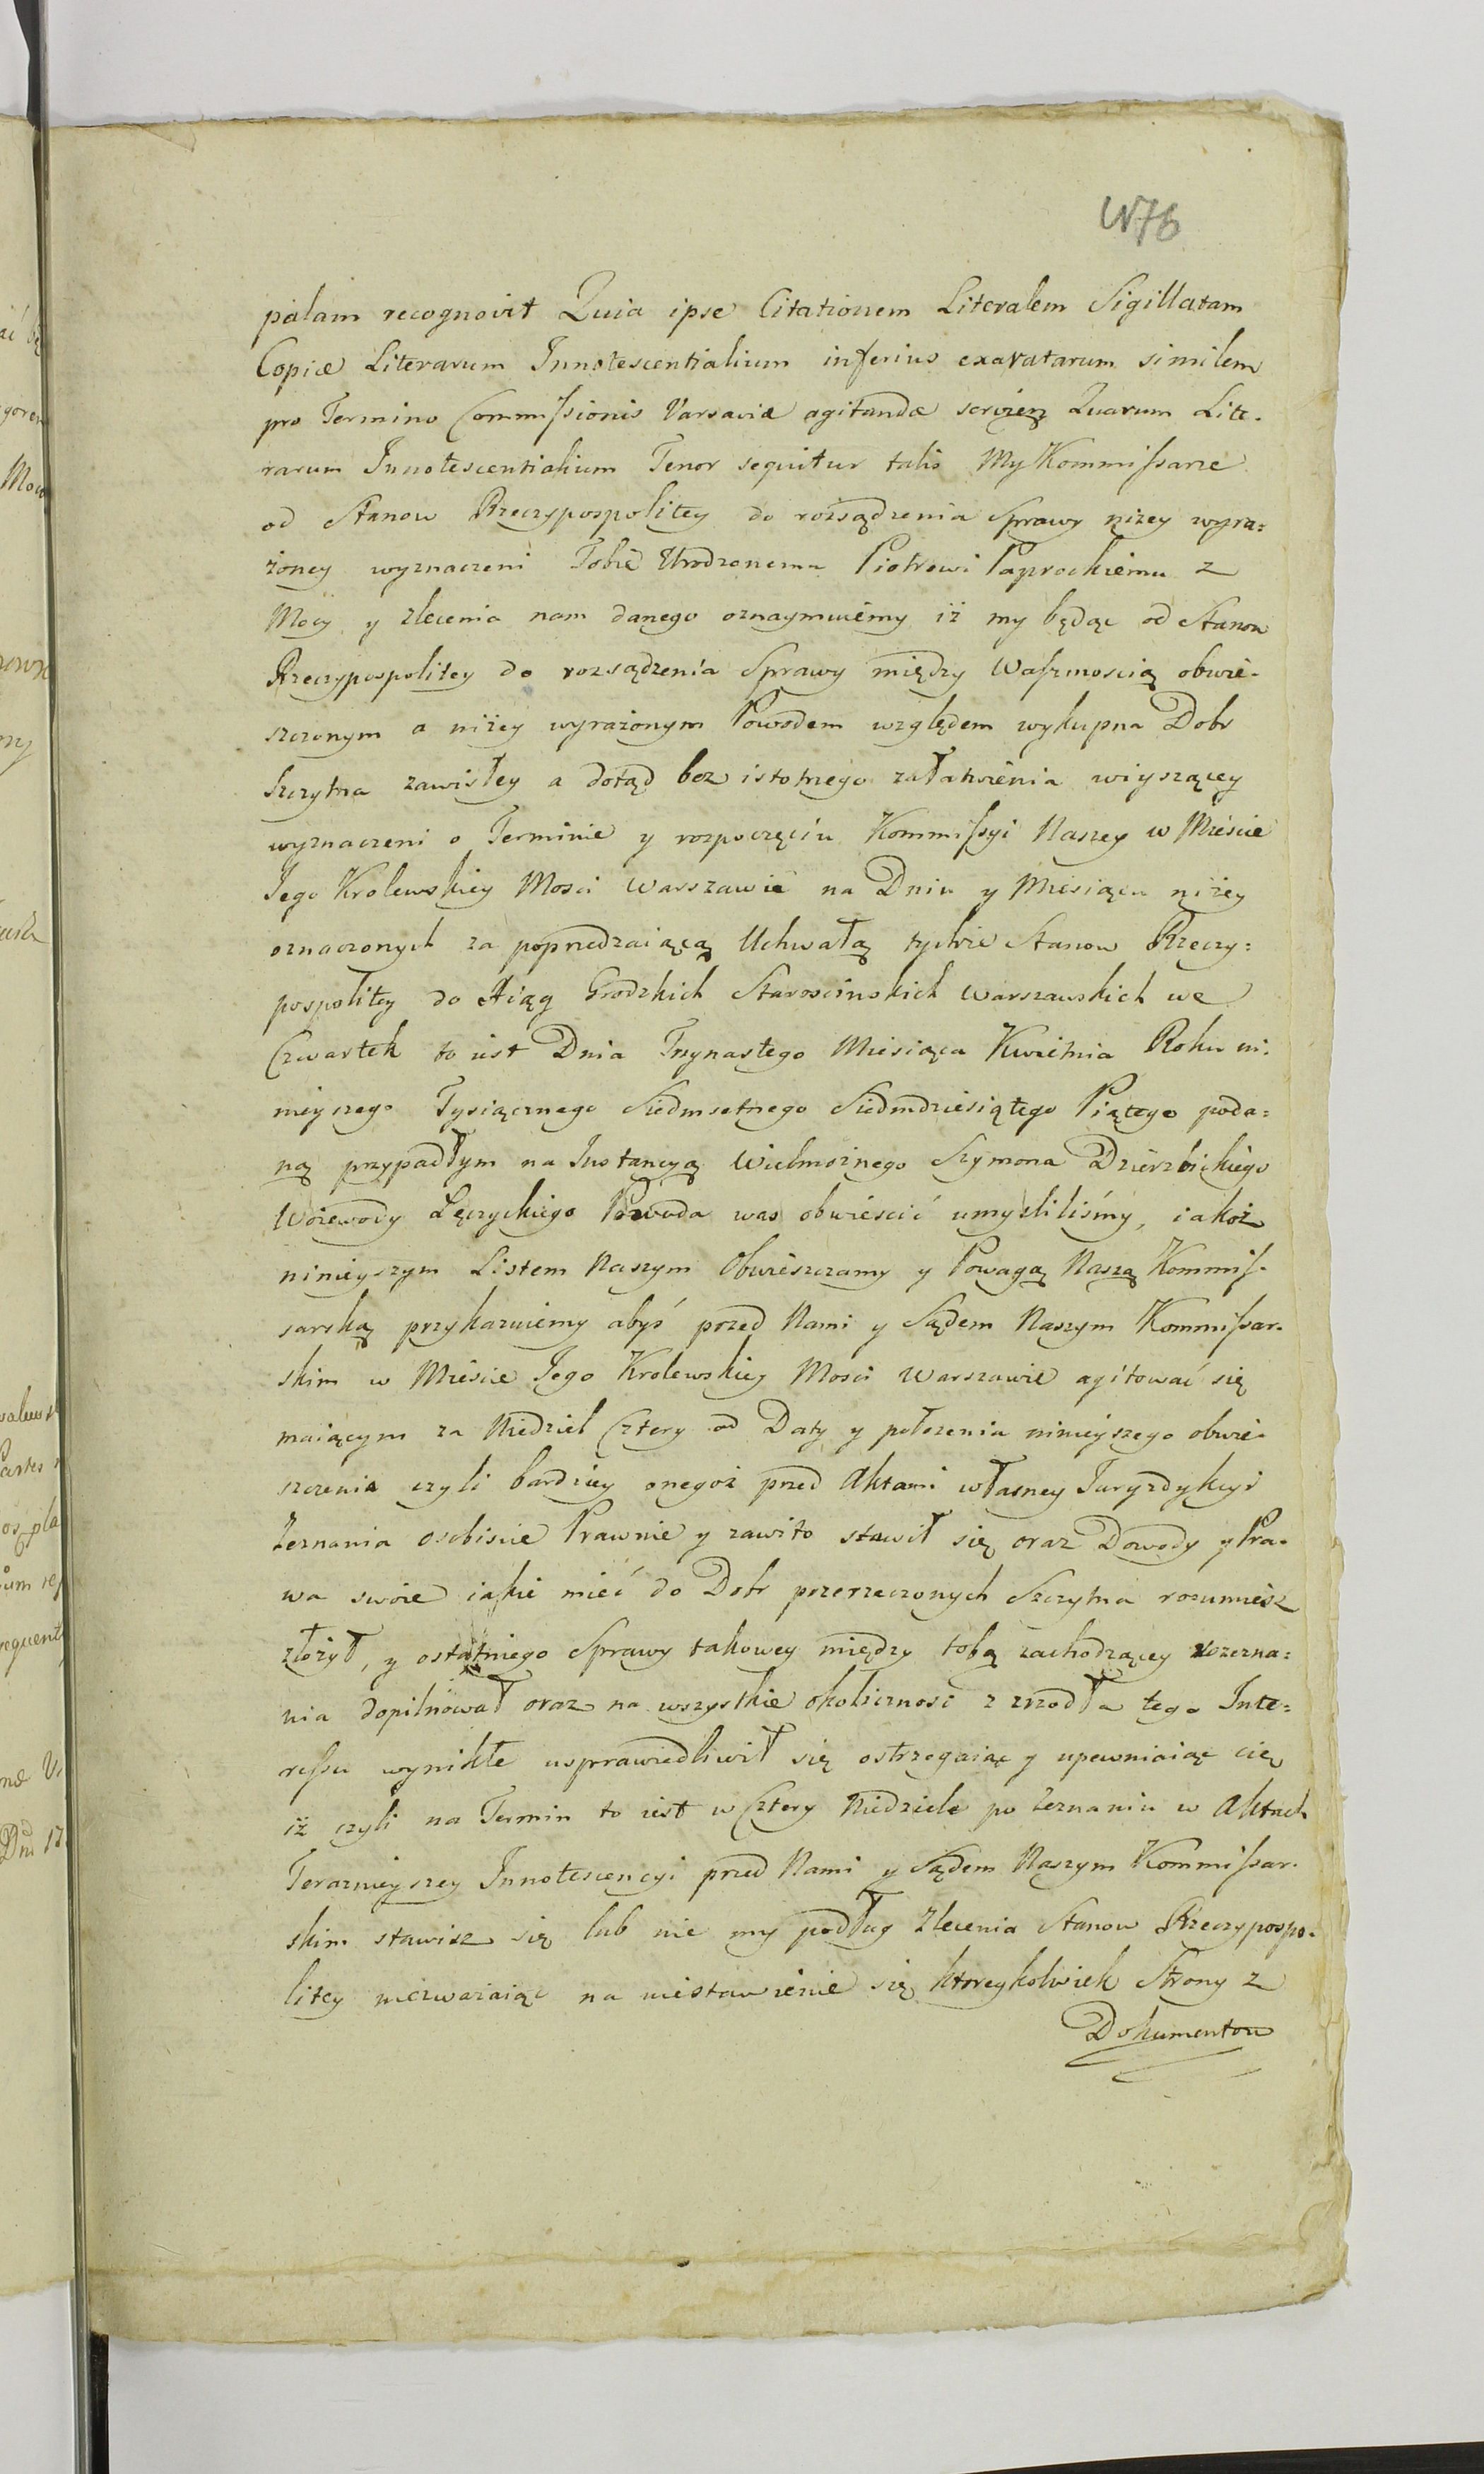 palam recognovit Quia ipse Citationem Literalem Sigillatam
Copiæ Literarum Innotescentialium inferius exaratarum similem
pro Termino Commissionis Varsaviæ agitandæ Quarum Lite-
rarum Innotescentialium Tenor sequitur talis My Kommissarze
od Stanow Rzeczypospolitey do rozsądzenia Sprawy niżey wyra:
żoney wyznaczeni Tobie Urodzonemu Piotrowi Paprockiemu z
Mocy y zlecenia nam danego oznaymuiemy iż my będąc od Stanow
Rzeczypospolitey do rozsądzenia Sprawy między Waszmoscią obwie-
szczonym a niżey wyrażonym Powodem względem wykupna Dobr
Szczytna zawisłey a dotąd bez istotnego załatwienia wiyszącey
wyznaczeni o Terminie y rozpoczęciu Kommissyi Naszey w Miescie
Jego Krolewskiey Mosci Warszawie na Dniu y Miesiącu niżey
oznaczonych za poprzedzaiącą Uchwałą tychże Stanow Rzeczy:
pospolitey do Xiąg Grodzkich Starościnskich Warszawskich we
Czwartek to iest Dnia Trzynastego Miesiąca Kwietnia Roku ni-
nieyszego Tysiącznego Siedmsetnego Siedmdziesiątego Piątego poda:
ną przypadłym na Instancyą Wielmożnego Szymona Dzierzbickiego
Woiewody Łęczyckiego Powoda was obwiescić umyslilismy, iakoż
ninieyszym Listem Naszym Obwieszczamy y Powagą Naszą Kommis-
sarską przykazuiemy abyś przed Nami y Sądem Naszym Kommissar-
skim w Miescie Jego Krolewskiey Mosci Warszawie agitować się
maiącym za Niedziel Cztery od Daty y położenia ninieyszego obwie-
szczenia czyli bardziey onegoż przed Aktami własney Juryzdykcyi
Zeznania osobiscie Prawnie y zawito stawił się oraz Dowody y Pra-
wa swoie iakie mieć do Dobr przerzeczonych Szczytna rozumiesz
złożył, y ostatniego Sprawy takowey między tobą zachodzącey
nia dopilnował oraz na wszystkie okolicznosci z zrzodła tego Inte:
ressu wynikłe usprawiedliwił się ostrzegaiąc y upewniaiąc cię
iż czyli na Termin to iest w Cztery Niedziele po Zeznaniu w Aktach
Terazneyszey Innotescencyi przed Nami y Sądem Naszym Kommissar-
skim stawisz się lub nie my podług Zlecenia Stanow Rzeczypospo-
litey niezważaiąc na niestawienie się ktoreykolwiek Strony z
Dokumentow